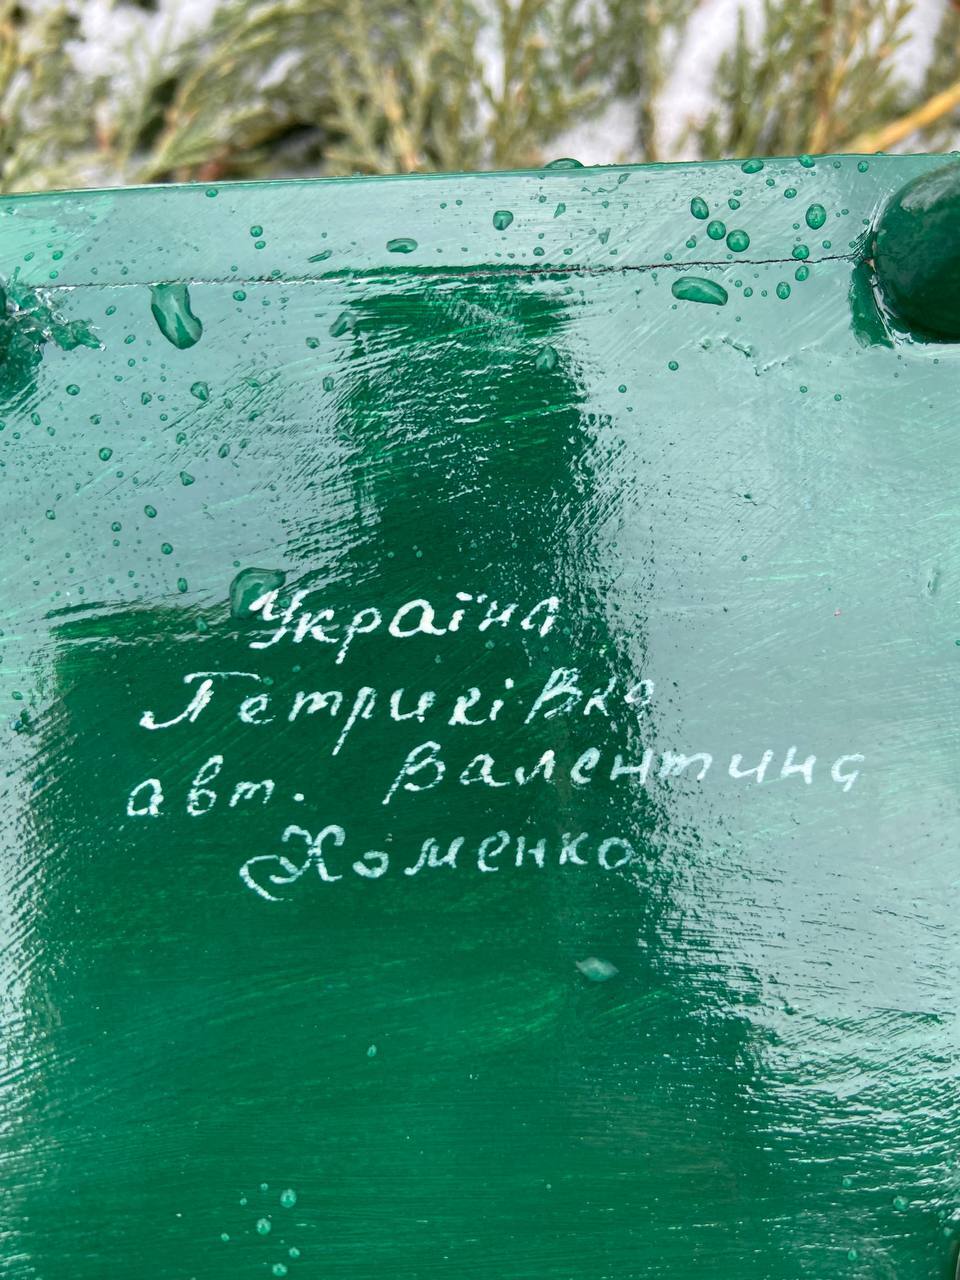 Україна
Петриківка
авт. Валентина
Хоменко